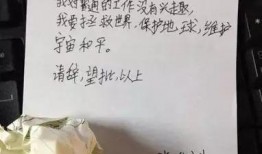 我对普通的工作没有兴趣，
我要拯救世界，保护地球，维护
宇宙和平。
请辞，望批，以上